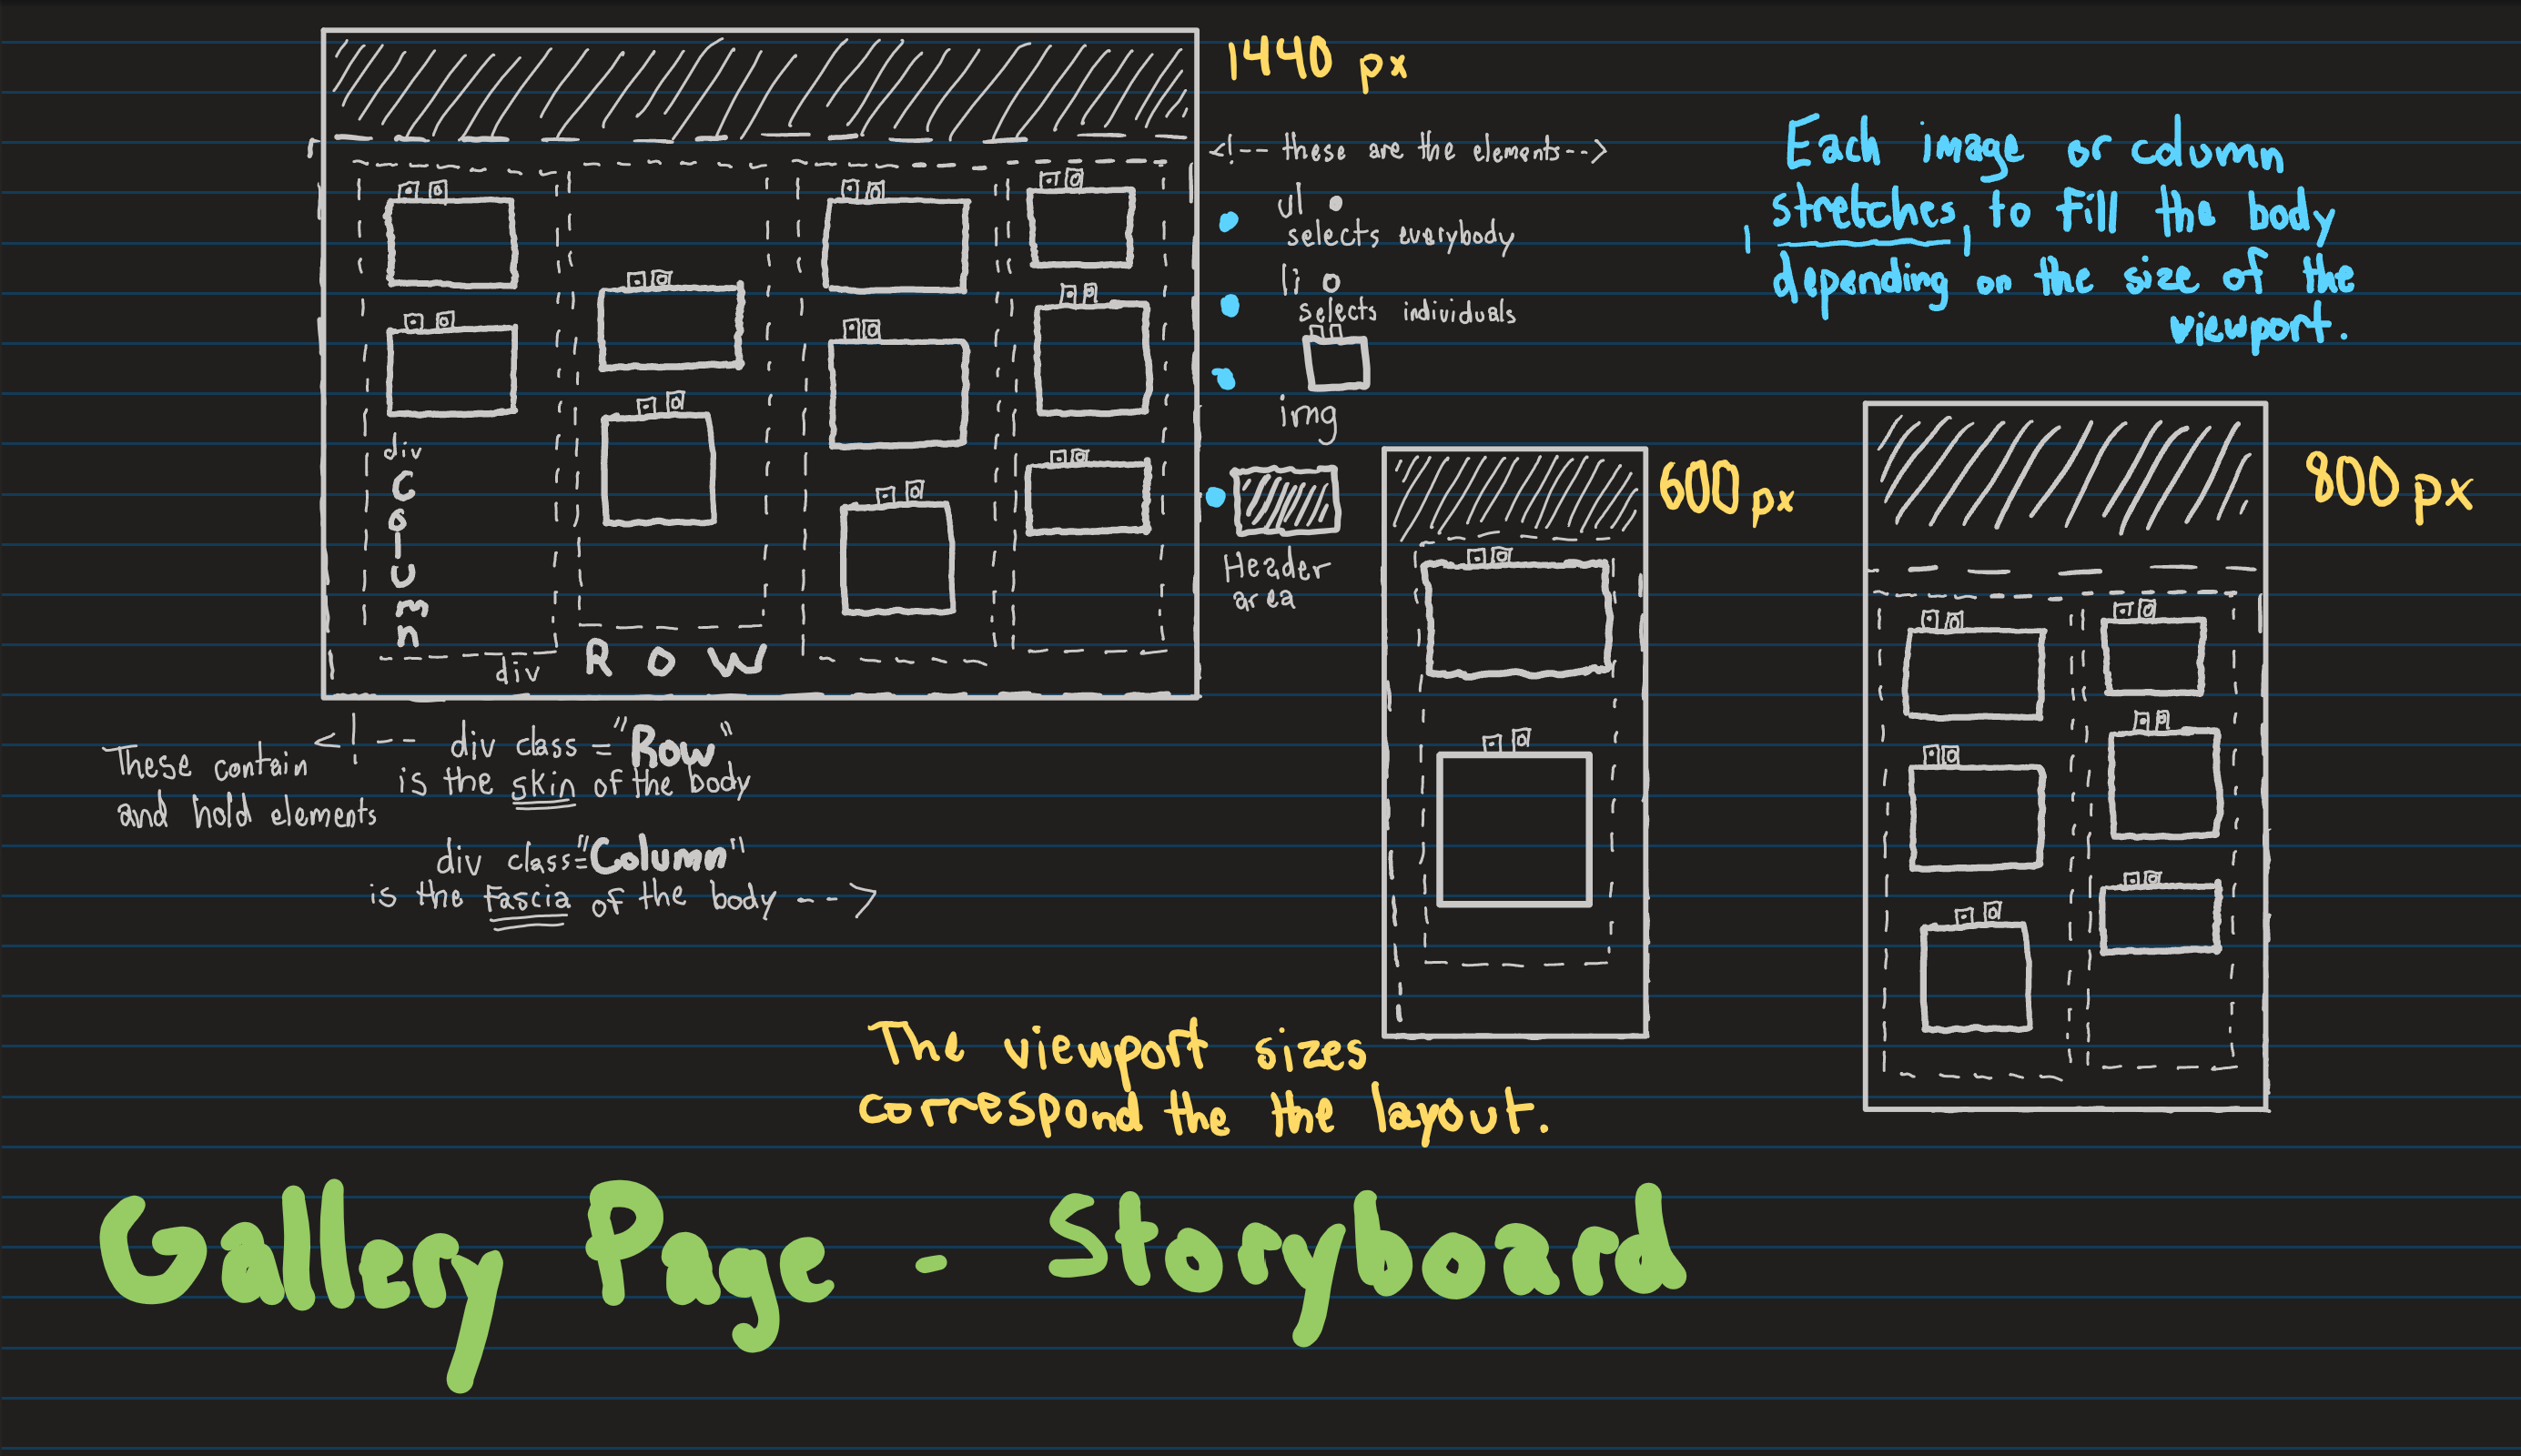 1440 px
<!-- these are the elements-->
ul
selects everybody
li
selects individuals
img
Header
area
Each image or column
stretches, to fill the body
depending on the size of the
viewport.
div
Column
div
ROW
600 px
800 px
These contain
and hold elements
<!-- div class ="Row"
is the skin of the body
div class="Column"
is the fascia of the body -->
The viewport sizes
correspond the the layout.
Gallery Page - Storyboard